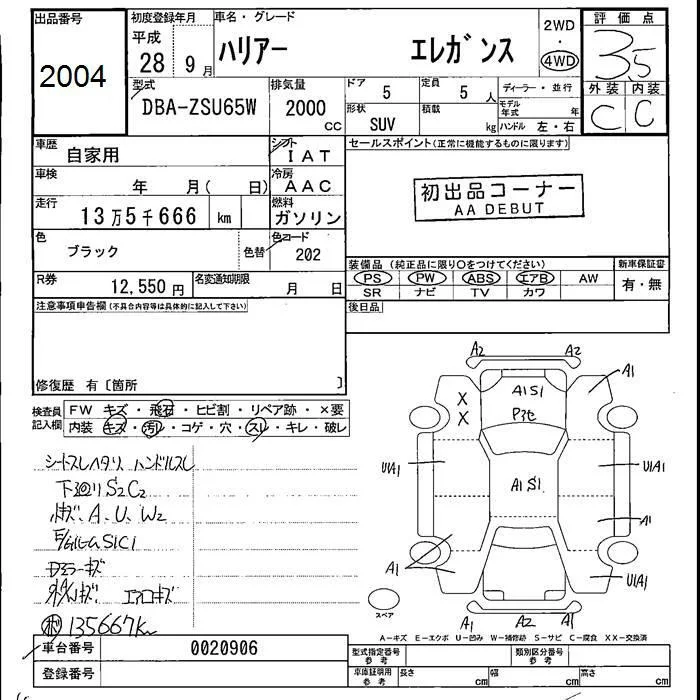 出品番号 初度登録年月 車名・グレード 2WD 評価点
2004 平成 28 9月 ハリアー エレガンス ・ 4WD 3.5
型式 排気量 ドア 5 定員 5人 ディーラー・並行 外装 内装
DBA-ZSU65W 2000 CC 形状 SUV 積載 kg モデル年式 年 ハンドル 左・右 C C
車歴 自家用 シフト IAT セールスポイント(正常に機能するものに限ります)
車検 年 月( 日) 冷房 AAC 初出品コーナー
AA DEBUT
走行 13万5千666 km 燃料 ガソリン
色 ブラック 色替 色コード 202
装備品(純正品に限り○をつけてください) 新車保証書
R券 12,550円 名変通知期限 月 日 PS PW ABS エアB AW 有・無
SR ナビ TV カワ
注意事項申告欄(不具合内容等は具体的に記入して下さい) 後日品
修復歴 有〔箇所 〕
検査員記入欄 FW キズ・飛石・ヒビ割・リペア跡・×要
内装 キズ・汚レ・コゲ・穴・スレ・キレ・破レ
シートスレヘタリ ハンドルスレ
下廻リS2C2
小キズ、A、U、W2
S1C1
ドアミラーキズ
エアロキズ
135667km
A2 A2
A1
A1S1
X
X
U1A1 U1A1
A1S1
A1
A1 U1A1
A1 A2 A1
スペア
A-キズ E-エクボ U-凹み W-補修跡 S-サビ C-腐食 XX-交換済
車台番号 0020906 型式指定番号 参考 類別区分番号 参考
登録番号 車庫証明用 参考 長さ cm 幅 cm 高さ cm